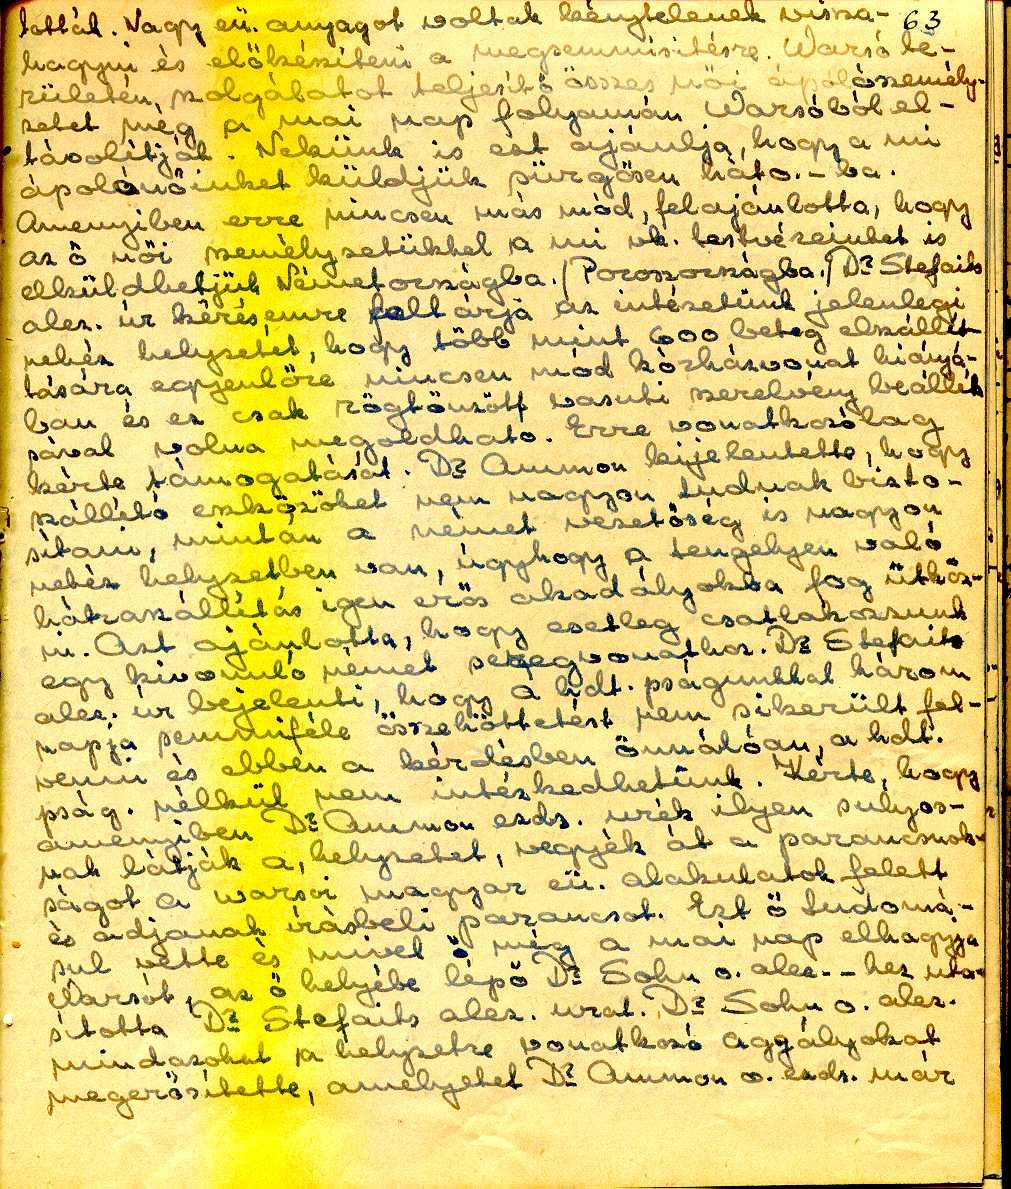 63
tották. Nagy eü. anyagot voltak kénytelenek vissza-
hagyni és előkészíteni a megsemmisítésre. Warsó te-
rületén, szolgálatot teljesítő összes női ápolószemély-
zetet még a mai nap folyamán Warsóból el-
távolítják. Nekünk is ezt ajánlja, hogy a mi
ápolónőinket küldjük sürgősen háto.-ba.
Amenyiben erre nincsen más mód, felajánlotta, hogy
az ő női személyzetükkel a mi vk. testvéreinket is
elküldhetjük Németországba. /Poroszországba./ Dr Stefaits
alez. úr kérésemre feltárja az intézetünk jelenlegi
nehéz helyzetét, hogy több mint 600 beteg elszállít-
tására egyenlőre nincsen mód kórházvonat hiányá-
ban és ez csak rögtönzött vasuti szerelvény beállítá-
sával volna megoldható. Erre vonatkozólag
kérte támogatását. Dr Ammon kijelentette, hogy
szállító eszközöket nem nagyon tudnak bizto-
sítani, miután a német vezetőség is nagyon
nehéz helyzetben van, úgyhogy a tengelyen való
hátraszállítás igen erős akadályokba fog ütköz-
ni. Azt ajánlotta, hogy esetleg csatlakozzunk
egy kivonuló német seregvonathoz. Dr Stefaits
alez. úr bejelenti, hogy a hdt. pságunkkal három
napja semmiféle összeköttetést nem sikerült fel-
venni és ebben a kérdésben önnálóan, a hdt.
pság. nélkül nem intézkedhetünk. Kérte, hogy
amenyiben Dr Ammon ezds. urék ilyen súlyos-
nak látják a helyzetet, vegyék át a parancsnok-
ságot a warsói magyar eü. alakulatok felett
és adjanak írásbeli parancsot. Ezt ő tudomá-
sul vette és mivel ő még a mai nap elhagyja
Warsót, az ő helyébe lépő Dr Sohn o. alez.-hez uta-
sította Dr Stefaits alez. urat. Dr Sohn o. alez.
mindazokat a helyzetre vonatkozó aggályokat
megerősítette, amelyeket Dr Ammon o. ezds. már